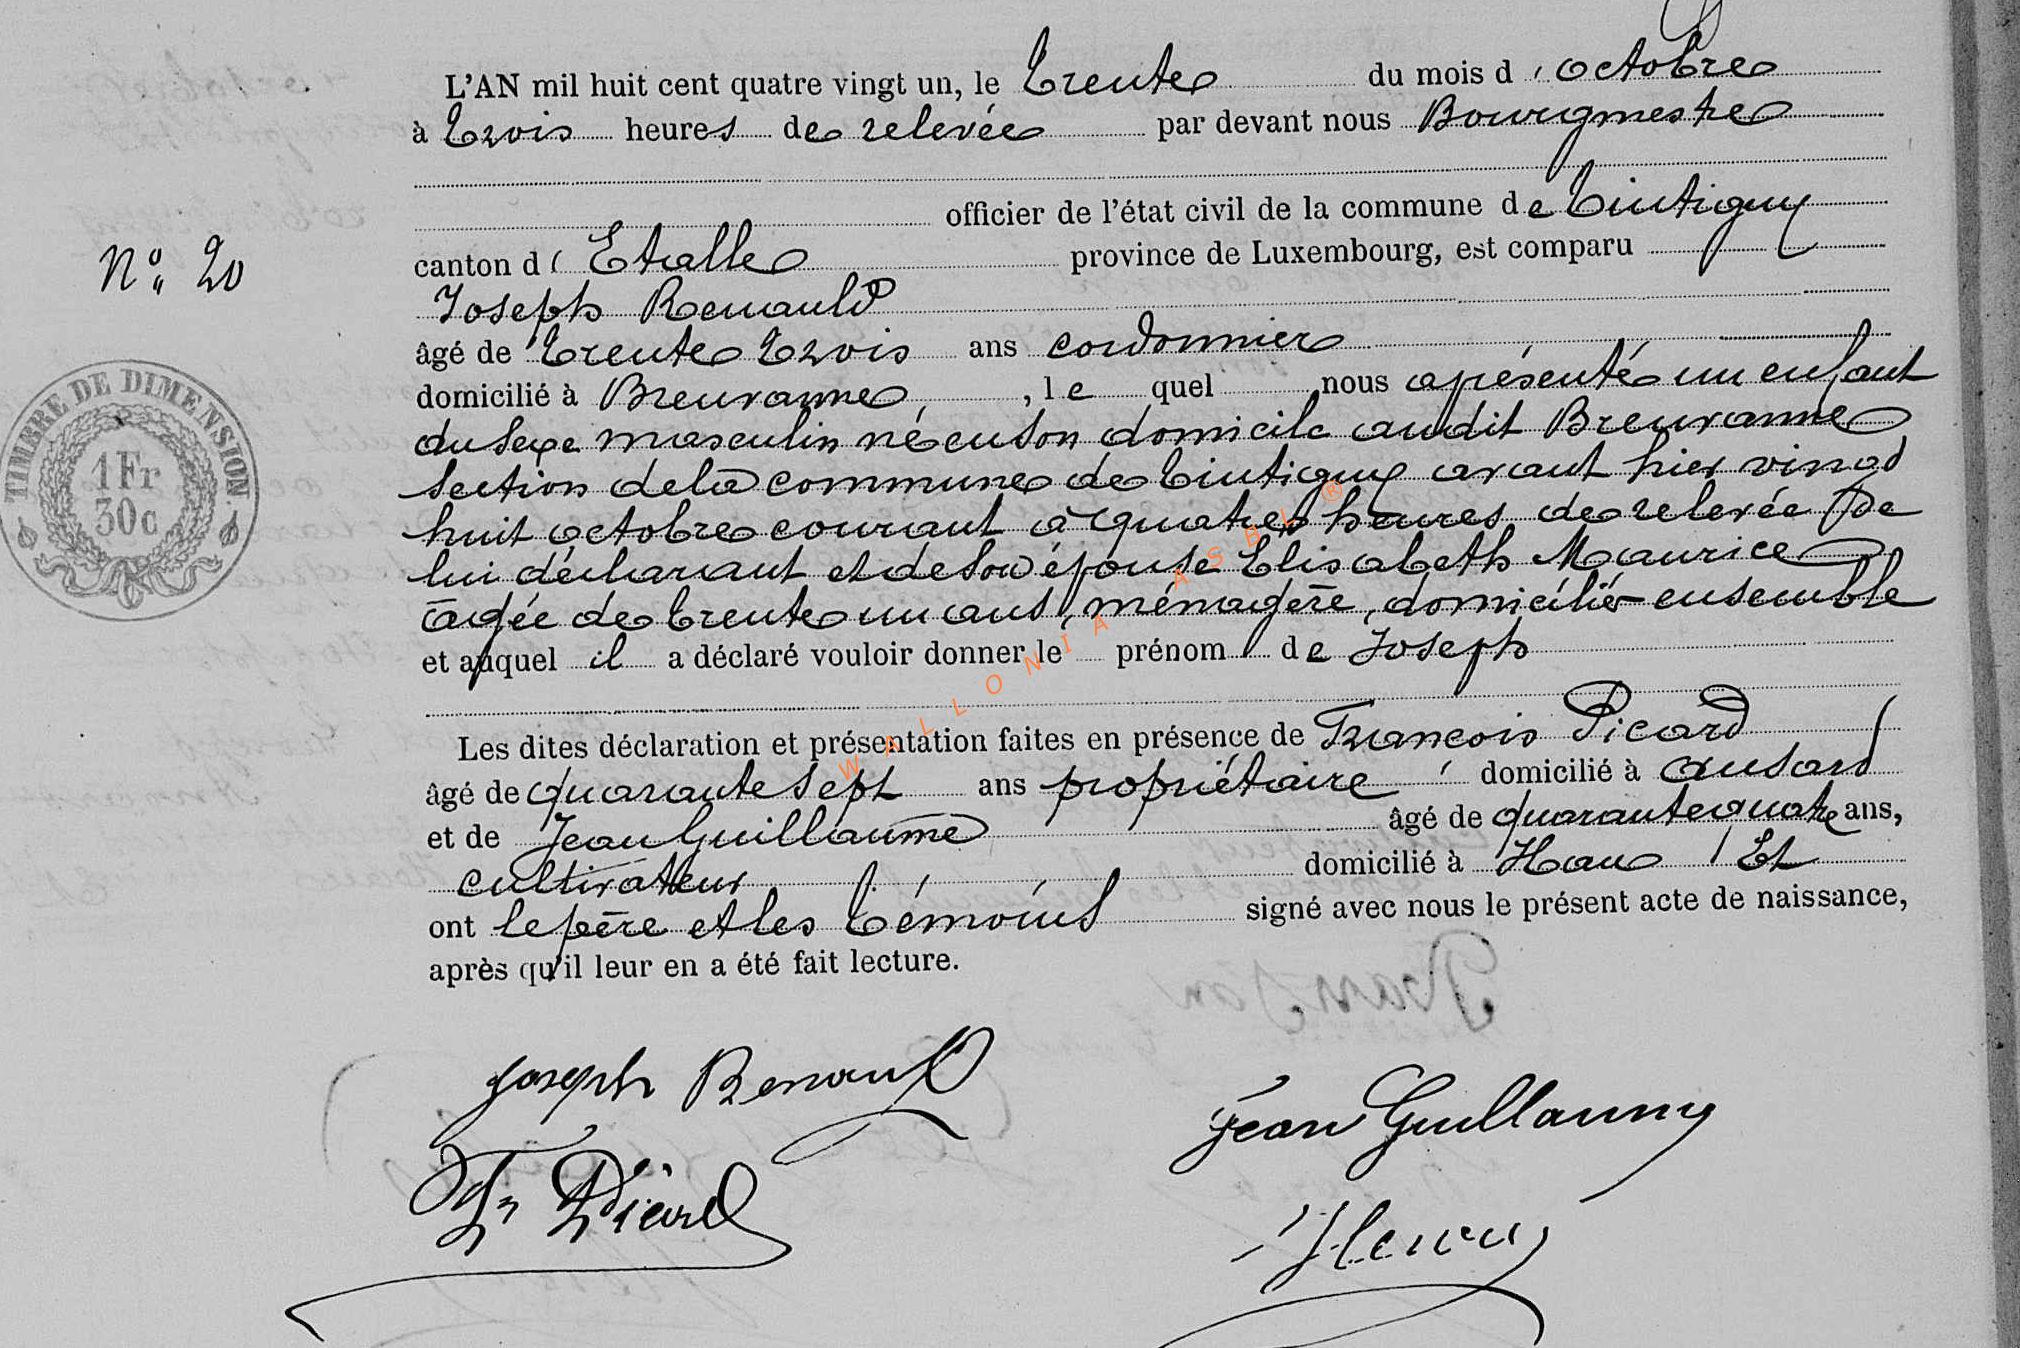 L'AN mil huit cent quatre vingt un, le Trente du mois d'octobre
à Trois heures de relevée par devant nous Bourgmestre
officier de l'état civil de la commune de Tintigny
N° 20
canton d'Etalle province de Luxembourg, est comparu
Joseph Renauld
âgé de Trente Trois ans cordonnier
domicilié à Breuvanne, , le quel nous a présenté un enfant
du sexe masculin né en son domicile audit Breuvanne
section de la commune de Tintigny avant hier vingt
huit octobre courant à quatre heures de relevée De
lui déclarant et de son épouse Elisabeth Maurice
âgée de Trente un ans, ménagère, domiciliés ensemble
et auquel il a déclaré vouloir donner le prénom de Joseph
Les dites déclaration et présentation faites en présence de François Picard
âgé de quarante sept ans propriétaire domicilié à Ansart
et de Jean Guillaume âgé de quarante quatre ans,
cultivateur domicilié à Han Et
ont le père et les Témoins signé avec nous le présent acte de naissance,
après qu'il leur en a été fait lecture.
TIMBRE DE DIMENSION
1 Fr
30c
WALLONIA ASBL ®
Joseph Renauld
Jean Guillaume
Fr Picard